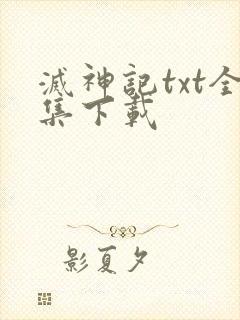 滅神記txt全
集下載
影夏夕